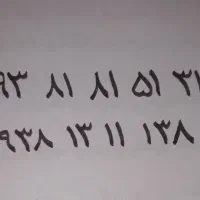 ۹۳ ۸۱ ۸۱ ۵۱ ۳۱
۹۳۸ ۱۳ ۱۱ ۱۳۸